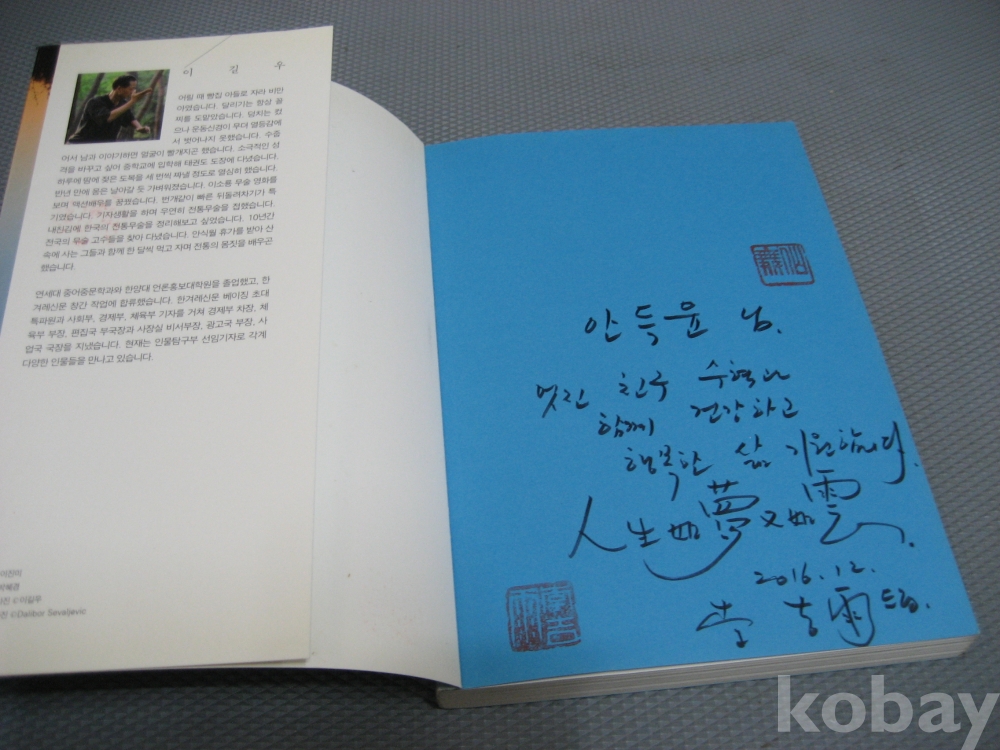 이 길 우
어릴 때 빵집 아들로 자라 비만
아였습니다. 달리기는 항상 꼴
찌를 도맡았습니다. 덩치는 컸
으나 운동신경이 무뎌 열등감에
서 벗어나지 못했습니다. 수줍
어서 남과 이야기하면 얼굴이 빨개지곤 했습니다. 소극적인 성
격을 바꾸고 싶어 중학교에 입학해 태권도 도장에 다녔습니다.
하루에 땀에 젖은 도복을 세 번씩 짜낼 정도로 열심히 했습니다.
반년 만에 몸은 날아갈 듯 가벼워졌습니다. 이소룡 무술 영화를
보며 액션배우를 꿈꿨습니다. 번개같이 빠른 뒤돌려차기가 특
기였습니다. 기자생활을 하며 우연히 전통무술을 접했습니다.
내친김에 한국의 전통무술을 정리해보고 싶었습니다. 10년간
전국의 무술 고수들을 찾아 다녔습니다. 안식월 휴가를 받아 산
속에 사는 그들과 함께 한 달씩 먹고 자며 전통의 몸짓을 배우곤
했습니다.
연세대 중어중문학과와 한양대 언론홍보대학원을 졸업했고, 한
겨레신문 창간 작업에 합류했습니다. 한겨레신문 베이징 초대
특파원과 사회부, 경제부, 체육부 기자를 거쳐 경제부 차장, 체
육부 부장, 편집국 부국장과 사장실 비서부장, 광고국 부장, 사
업국 국장을 지냈습니다. 현재는 인물탐구부 선임기자로 각계
다양한 인물들을 만나고 있습니다.
©이길우
©Dalibor Sevaljevic
안득윤 님.
멋진 친구 수혁과
함께 건강하고
행복한 삶 기원합니다.
人生如夢又如雲.
2016.12.
李吉雨 드림.
kobay